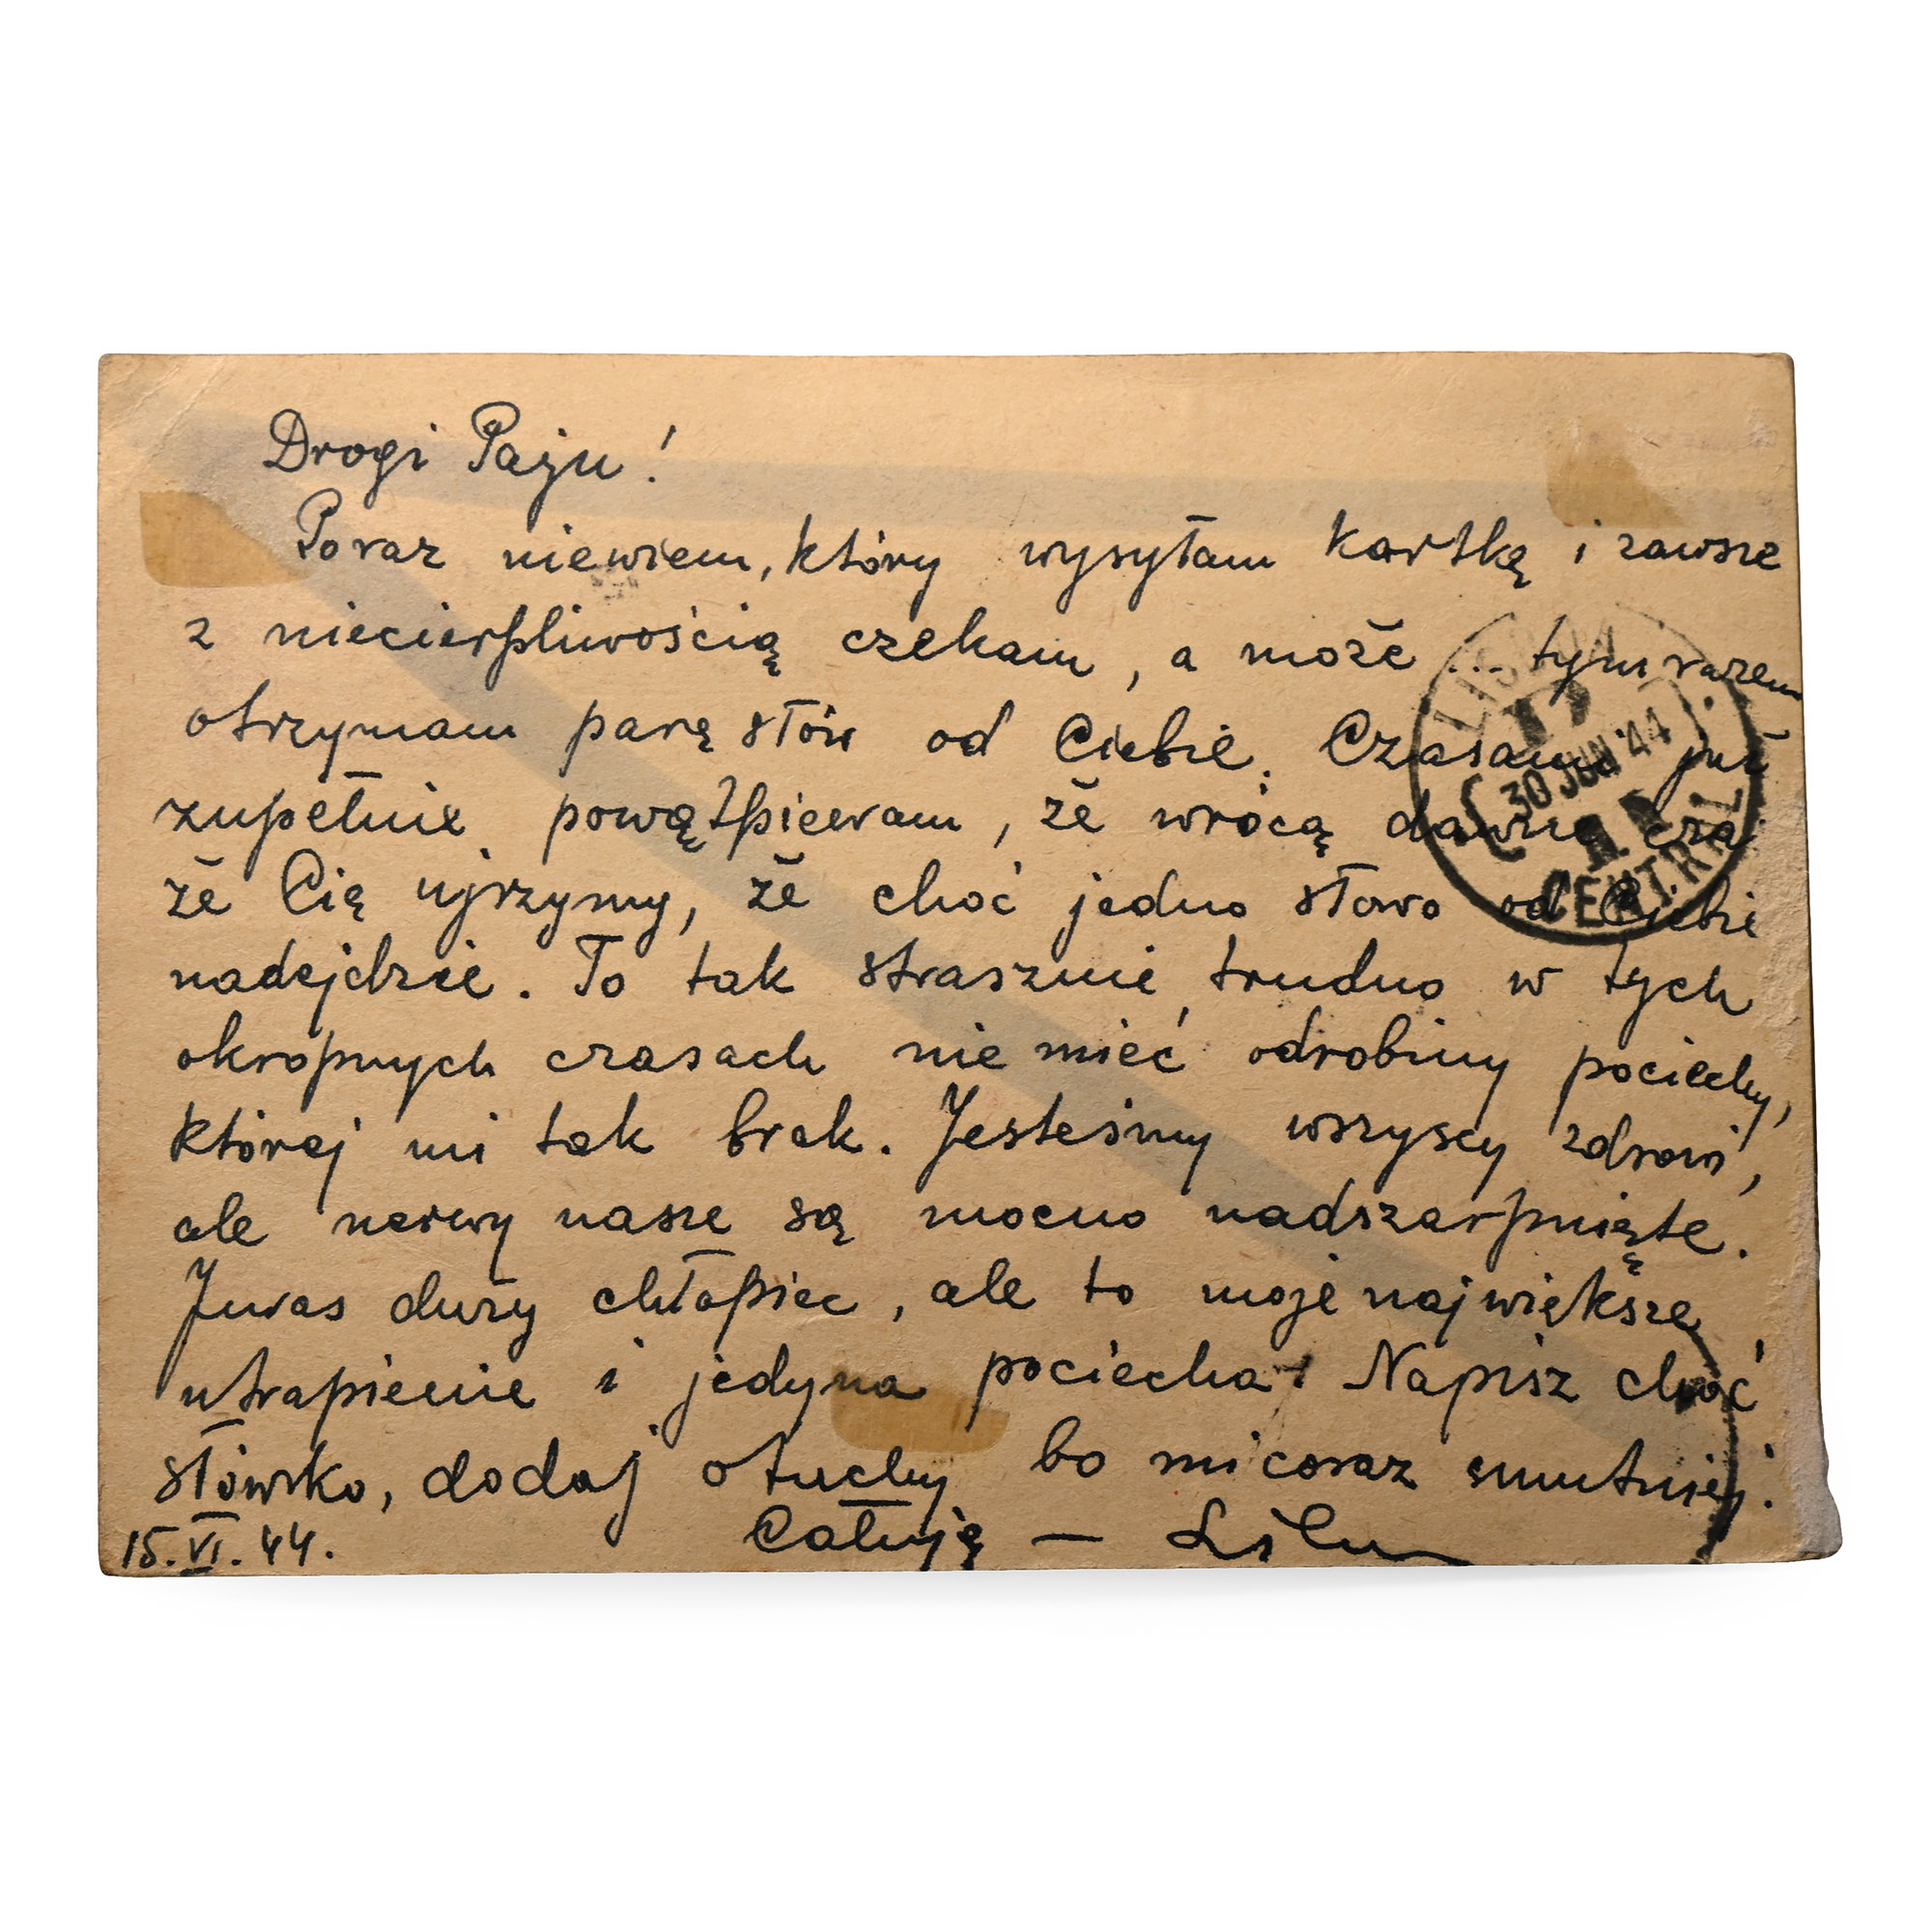 Drogi Paju!
Poraz niewiem, który wysyłam kartkę i zawsze
z niecierpliwością czekam, a może ... tym razem
otrzymam parę słów od Ciebie. Czasami już
zupełnie powątpiewam, że wrócą dawne cza
że Cię ujrzymy, że choć jedno słowo od Ciebie
nadejdzie. To tak strasznie trudno w tych
okropnych czasach nie mieć odrobiny pociechy,
której mi tak brak. Jesteśmy wszyscy zdrowi,
ale nerwy nasze są mocno nadszarpnięte.
Juras duży chłopiec, ale to moje największe
utrapienie i jedyna pociecha! Napisz choć
słówko, dodaj otuchy bo mi coraz smutniej.
15.VI.44. Całuję —
30 JUN '44
CENTRAL